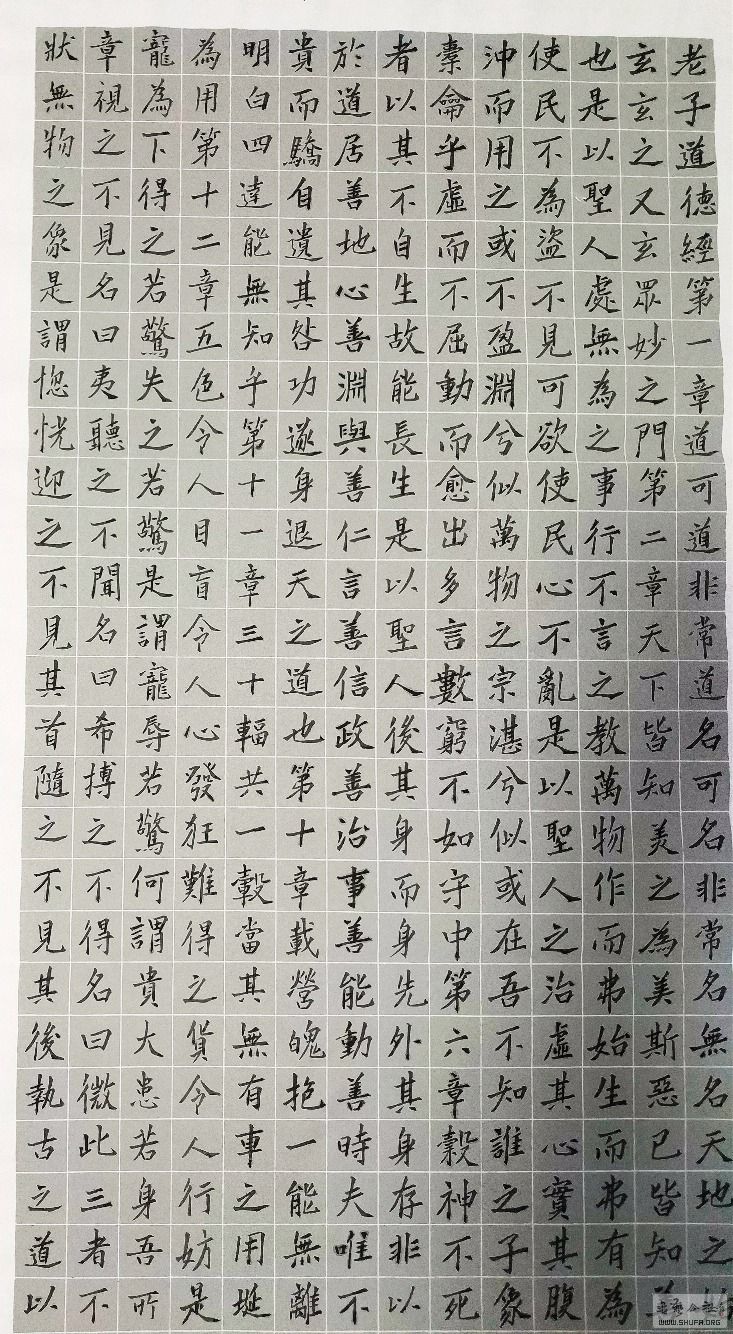 老子道德經第一章道可道非常道名可名非常名無名天地之
玄玄之又玄眾妙之門第二章天下皆知美之為美斯惡已皆知
也是以聖人處無為之事行不言之教萬物作而弗始生而弗有為
使民不為盜不見可欲使民心不亂是以聖人之治虛其心實其腹
沖而用之或不盈淵兮似萬物之宗湛兮似或在吾不知誰之子象
橐龠乎虛而不屈動而愈出多言數窮不如守中第六章榖神不死
者以其不自生故能長生是以聖人後其身而身先外其身身存非以
於道居善地心善淵與善仁言善信政善治事善能動善時夫唯不
貴而驕自遺其咎功遂身退天之道也第十章載營魄抱一能無離
明白四達能無知乎第十一章三十輻共一轂當其無有車之用埏
為用第十二章五色令人目盲令人心發狂難得之貨令人行妨是
寵為下得之若驚失之若驚是謂寵辱若驚何謂貴大患若身吾所
章視之不見名曰夷聽之不聞名曰希搏之不得名曰微此三者不
狀無物之象是謂惚恍迎之不見其首隨之不見其後執古之道以
WWW.SHUFA.ORG